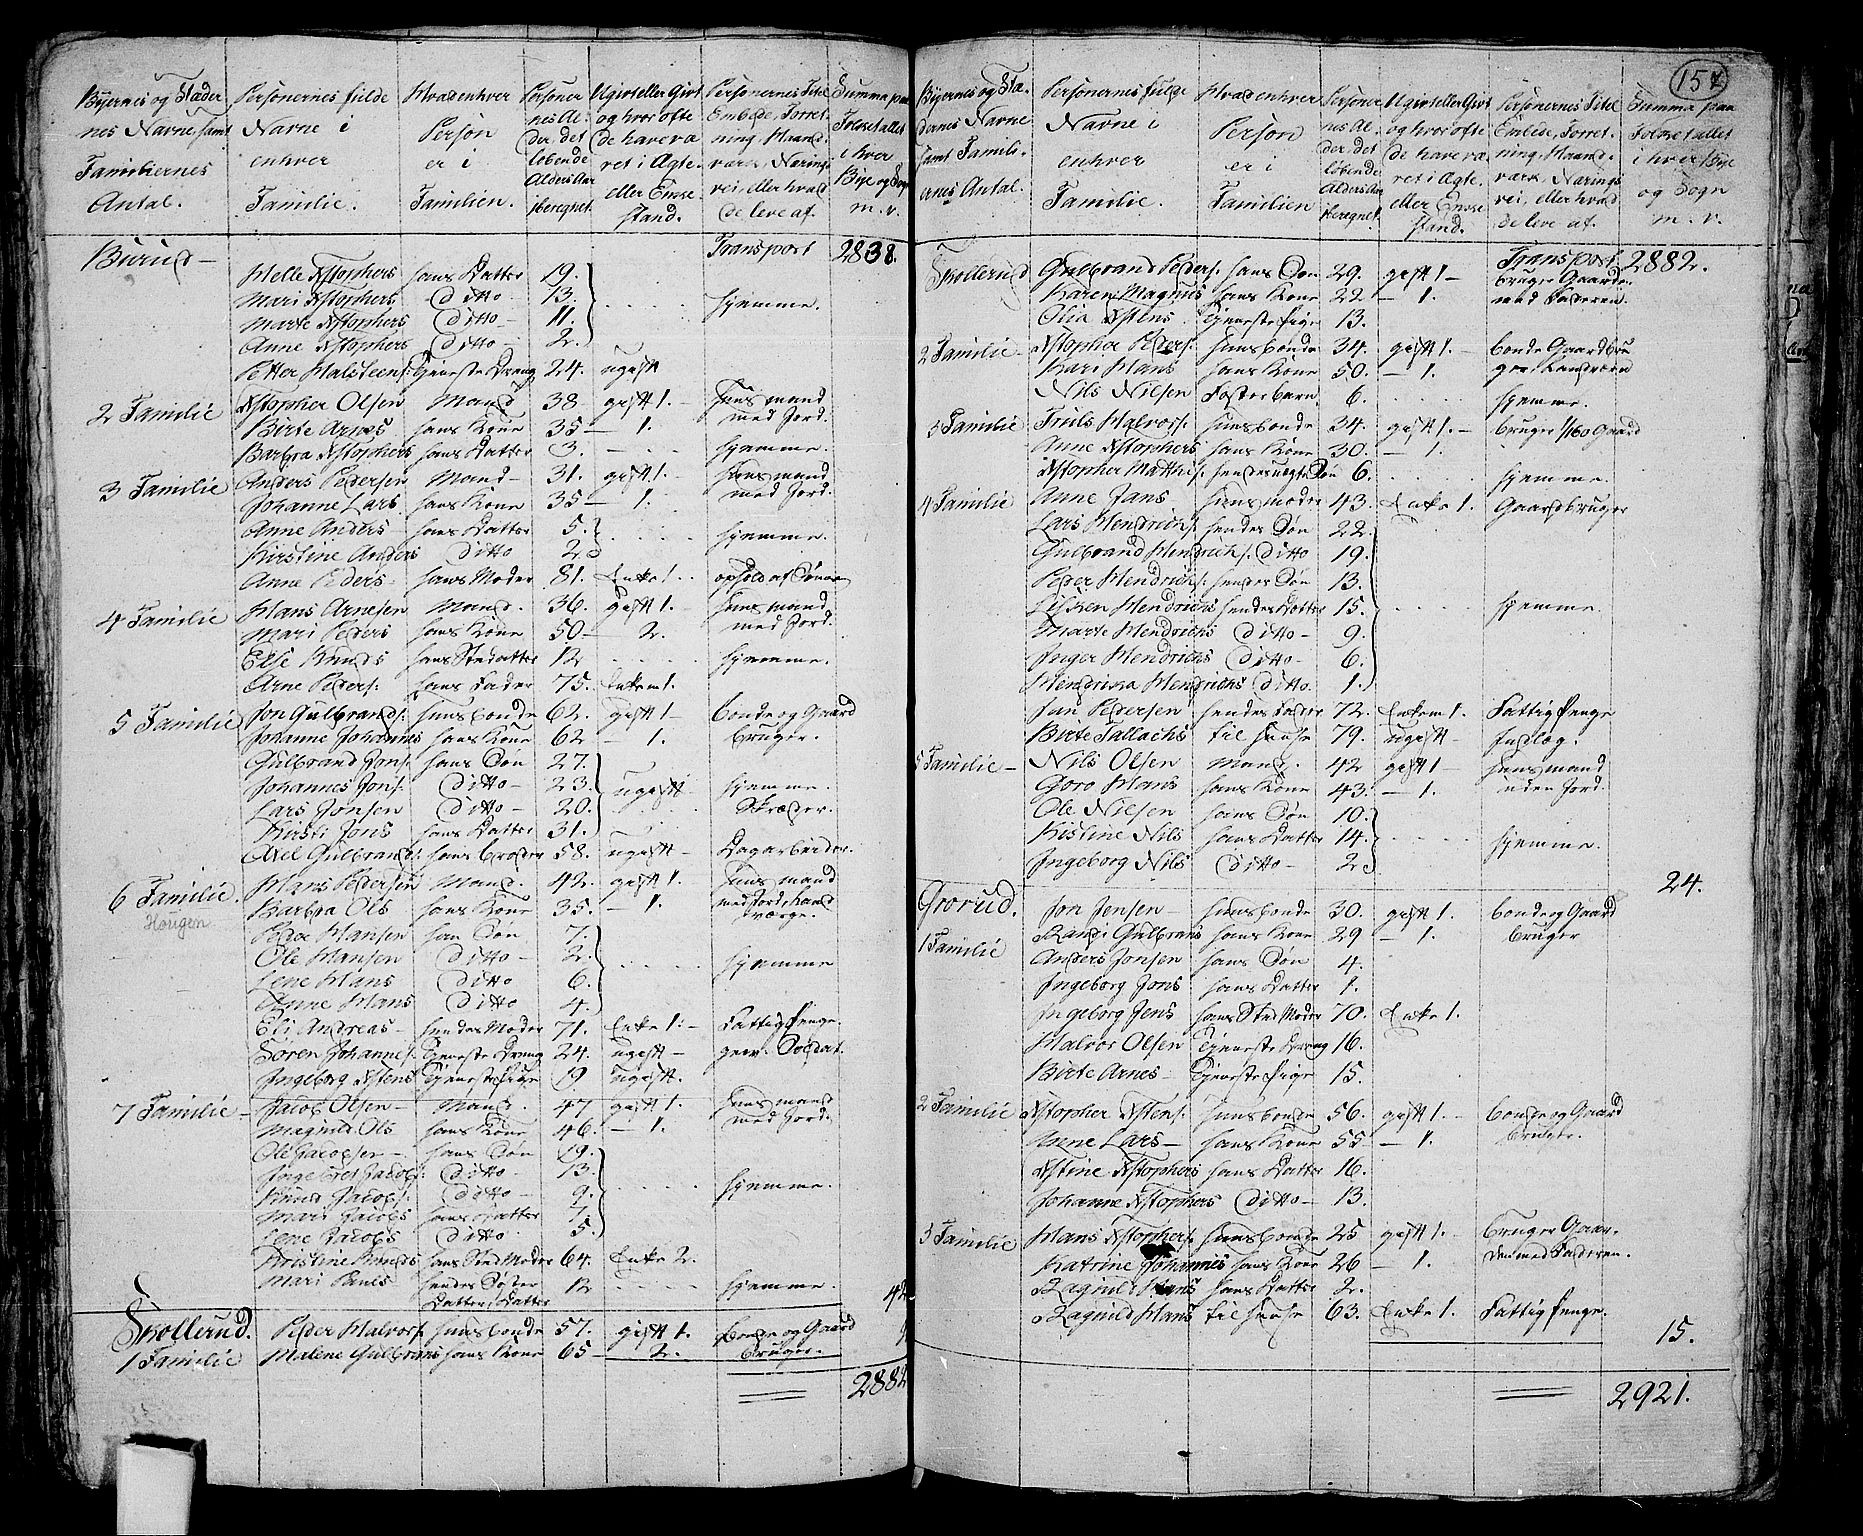 Byernes og Stæder
nes Navne samt
Familiernes
Antal.
Personernes fulde
Navne i
enhver
Familie.
Hvad enhver
Person
er i
Familien.
Personer
nes Al-
der, det
løbende
Alders Aar
iberegnet.
Ugivt eller Givt
og hvor ofte
de have væ
ret i Ægte
eller Enke
stand.
Personernes Titel
Embede, Forret-
ning, Haand
værk, Nærings
vei, eller hvad
de leve af.
Summa paa
Folketallet
i hver
Bye og Sogn
m. v.
Burud – Transport 2838.
Helle Xstophers hans Datter 19.
Mari Xstophers Ditto 13. hjemme.
Marte Xstophers Ditto 11.
Anne Xstophers Ditto 2.
Petter Halsteens: Tjeneste Dreng 24. ugift
2 Familie Xstopher Olsen Mand 38 gift 1. Huusmand
Birte Arnes hans Kone 35 – 1. med Jord.
Barbra Xstophers hans Datter 3. hjemme.
3 Familie Anders Pedersen Mand 31. gift 1. Huusmand
Johanne Lars hans Kone 35 – 1. med Jord.
Anne Anders hans Datter 5. hjemme.
Kirstine Anders Ditto 2
Anne Peders hans Moder 81. Enke 1. ophold af Sønnen
4 Familie Hans Arnesen Mand. 36. gift 1. Huusmand
Mari Peders hans Kone 50 – 2. med Jord.
Else Knuds hans Stedatter 12 hjemme.
Arne Peders: hans Fader 75. Enkem 1.
5 Familie Jon Gulbrands: Huusbonde 62. gift 1 – bonde og Gaard
Johanne Johannes hans Kone 62 – 1. bruger.
Gulbrand Jons: hans Søn 27.
Johannes Jons: Ditto – 23. ugift hjemme.
Lars Jonsen Ditto – 20. Skræder.
Kirsti Jons hans Datter 31.
Axel Gulbrands: hans broder 58. ugift – Dagarbeider.
6 Familie. Hans Pedersen Mand. 42. gift 1. Huusmand
Hougen Barbra Ols hans Kone 35. – 1. med Jord, Hand
værge.
Peder Hansen han Søn 7.
Ole Hansen Ditto – 2. hjemme
Lene Hans Ditto 6.
Anne Hans Ditto 4.
Eli Andreas – hendes Moder 71. Enke 1. – Fattig Penge.
Søren Johannes: Tjeneste Dreng 24. ugift – gev. Soldat.
Ingeborg Xstens Tjeneste Pige 19 ugift.
7 Familie – Jacob Olsen – Mand. 47 gift 1. Huusmand
Magnild Ols hans Kone 46. – 1. med Jord.
Ole Jacobsen – hans Søn 19.
Ingebret Jacobs: Ditto 13. hjemme.
Knud Jacobs: Ditto – 9.
Mari Jacobs hans Datter 7.
Lene Jacobs Ditto 5.
Kristine Knuds hans Sted Moder 64. Enke 2.
Mari hendes Søster 12 hjemme.
Datters Datter 42
Skollerud. Peder Halvors: Huusbonde 57. gift 1. bonde og Gaard
1 Familie Malene Gulbrans hans Kone 65 – 2. bruger.
2882
157
Byernes og Stæ-
dernes Navne
samt Famili-
ernes Antal.
Personernes fulde
Navne i
enhver
Familie.
Hvad enhver
Person
er i
Familien
Personer
nes Al-
der, det
løbende
Alders Aar
iberegnet.
Ugivt eller Givt
og hvor ofte
de have væ
ret i Ægte
eller Enke
stand.
Personernes Titel
Embede, Forret
ning, Haand
værk, Nærings
vei, eller hvad
de leve af.
Summa paa
Folketallet
i hver Bye
og Sogn
m. v.
Transport 2882.
Skollerud Gulbrand Peders: hans Søn 29. gift 1 – bruger Gaarden
Karen Magnus hans Kone 22 – 1. med Faderen.
Olia Xstens Tjeneste Pige 13.
2 Familie – Xstopher Peders: Huusbonde 34. gift 1. – bonde Gaardbru
Kari Hans hans Kone 50. – 1. ger Landværn
Nils Nilsen Fosterbarn 6. hjemme.
3 Familie Truls Halvors: Huusbonde 34. gift 1. – bruger 1/160 Gaard
Anne Xstophers hans Kone 30. – 1.
Xstopher Matthis: hendes uægte Søn 6. hjemme.
4 Familie Anne Jans Huusmoder 43. Enke 1. Gaardbruger
Lars Hendrichs: hendes Søn 22.
Gulbrand Hendrichs: Ditto 19.
Peder Hendrichs: hendes Søn 13.
Lisken Hendrichs hendes Datter 15. hjemme.
Marte Hendrichs Ditto – 9.
Inger Hendrichs Ditto – 6.
Hendrikka Hendrichs Ditto. 1.
Jan Pedersen hendes Fader 72. Enkem 1. Fattig Penge
Birte Tallachs til Huuse 79. ugift – Indlæg.
5 Familie – Nils Olsen Mand. 42 gift 1 – Huusmand
Goro Hans hans Kone 43. – 1. uden Jord.
Ole Nilsen hans Søn 10.
Kistine Nils hans Datter 14. hjemme.
Ingeborg Nils Ditto – 2
24.
Grorud. Jon Jensen – Huusbonde 30. gift 1. bonde og Gaard
1 Familie Randi Gulbrans hans Kone 29 – 1. bruger
Anders Jonsen hans Søn 4.
Ingeborg Jons hans Datter 1.
Ingeborg Jens hans Sted Moder 70. Enke 1.
Halvor Olsen Tjeneste Dreng 16.
Birte Arnes – Tjeneste Pige 15.
2 Familie Xstopher Xstens: Huusbonde 56. gift 1. – bonde og Gaard
Anne Lars – hans Kone 55 – 1. bruger.
Xstine Xstophers hans Datter 16.
Johanne Xstophers Ditto – 13.
3 Familie Hans Xstophers: Huusbonde 25 gift 1. – bruger Gaar-
Katrine Johannes hans Kone 26 – 1. den med Faderen.
Ragnild Hans hans Datter 2.
Ragnild Hans til Huuse 63. Enke 1. Fattig Penge.
15.
2921.